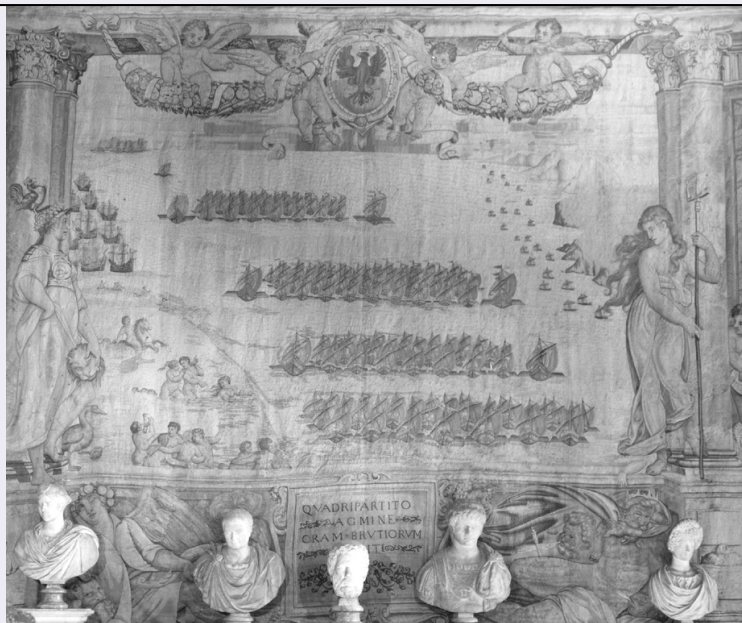 QVADRIPARTITO
AGMINE
ORAM BRVTIORVM